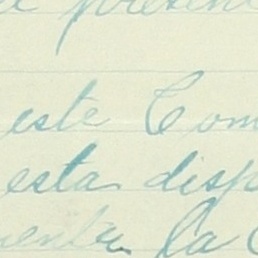 present
este Com
esta disp
la